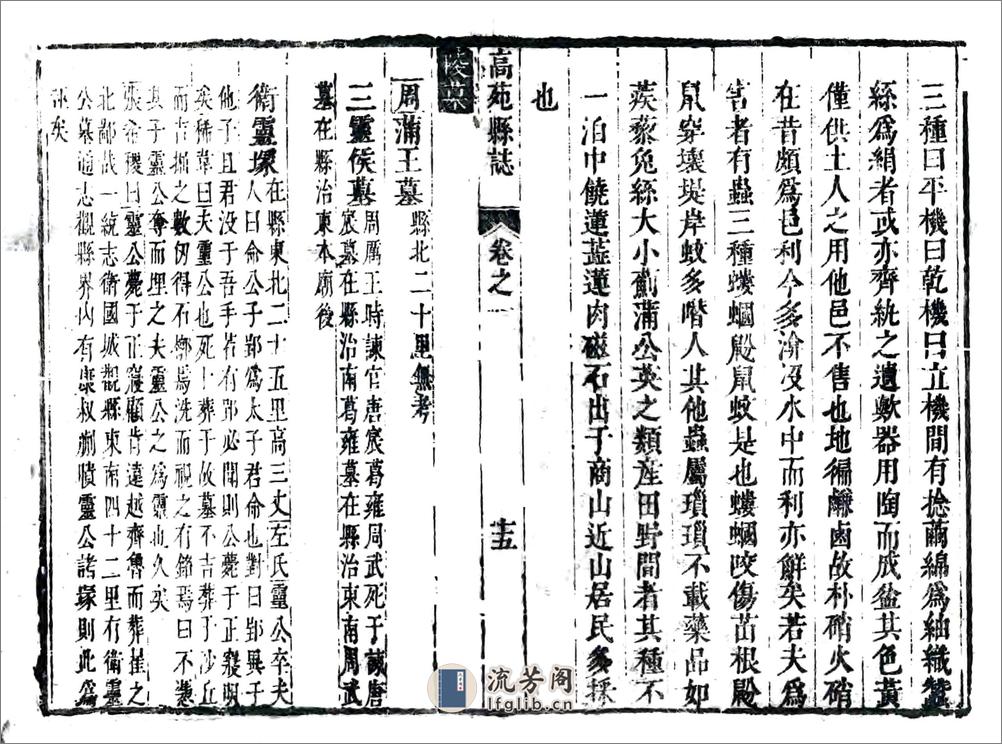 三種曰平機曰乾機曰立機間有捻繭綿爲紬織
絲爲絹者或亦齊紈之遺歟器用陶而成盆其色黃
僅供土人之用他邑不售也地徧鹻鹵故朴硝火硝
在昔頗爲邑利今多渰没水中而利亦鮮矣若夫爲
害者有蟲三種螻蟈鼢鼠蚊是也螻蟈咬傷苗根鼢
鼠穿壞堤岸蚊多噆人其他蟲屬瑣瑣不載藥品如
蒺藜兔絲大小薊蒲公英之類産田野間者其種不
一泊中饒蓮藍蓮肉磁石出于商山近山居民多採
也
高苑縣誌
卷之一
十五
陵墓
周蒲王墓 縣北二十里無考
三靈侯墓 周厲王時諫官唐宸葛雍周武死于諴唐
宸墓在縣治南葛雍墓在縣治東南周武
墓在縣治東本廟後
衛靈塚 在縣東北二十五里高三丈左氏靈公卒夫
人曰命公子郢爲太子君命也對曰郢異于
他子且君没于吾手若有郢必聞則公薨于正寢明
矣稀韋曰夫靈公也死卜葬于故墓不吉葬于沙丘
而吉掘之數仞得石槨焉洗而視之有銘焉曰不馮
其子靈公奪而埋之夫靈公之爲靈也久矣
張 曰靈公薨于正寢顧肯遠越齊魯而葬 之
北鄙哉一統志衛國城觀縣東南四十二里有衛靈
公墓通志觀縣界內有康叔蒯聵靈公諸塚則此爲
矣
流芳阁
lfglib.com